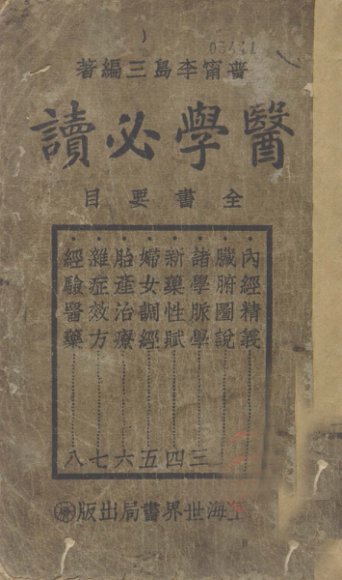 普甯李島三編著
醫學必讀
全書要目
內經精義
臟腑圖說
諸學脈學 三
新藥性賦 四
婦女調經 五
胎產治療 六
雜症效方 七
經驗醫藥 八
上海世界書局出版